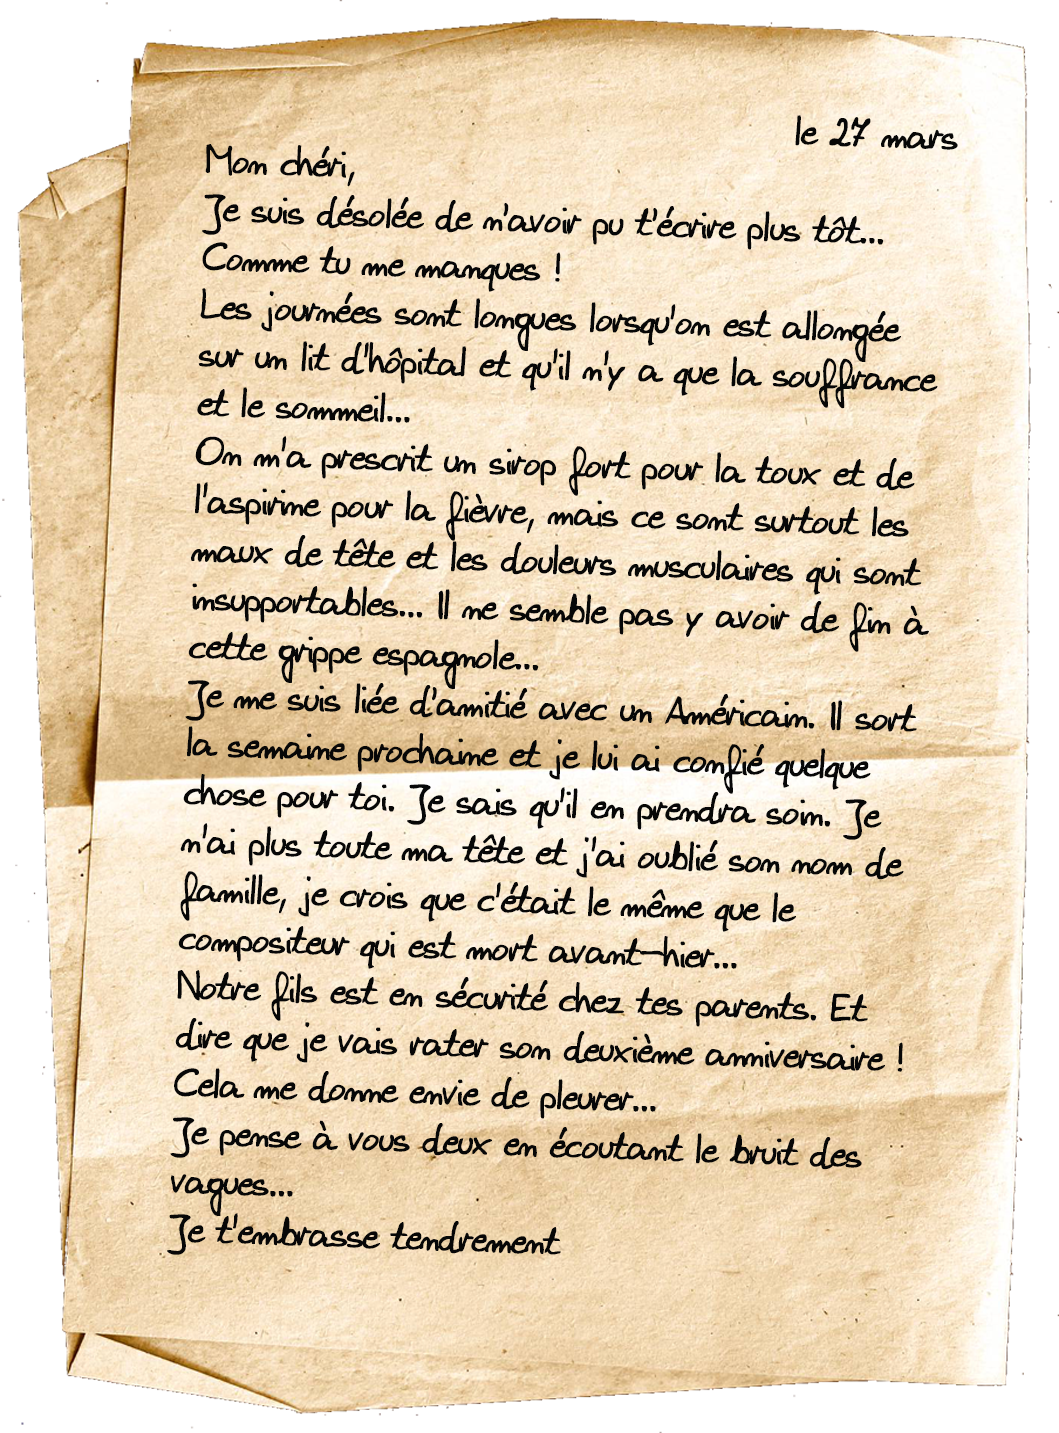 le 27 mars
Mon chéri,
Je suis désolée de n'avoir pu t'écrire plus tôt...
Comme tu me manques !
Les journées sont longues lorsqu'on est allongée
sur un lit d'hôpital et qu'il n'y a que la souffrance
et le sommeil...
On m'a prescrit un sirop fort pour la toux et de
l'aspirine pour la fièvre, mais ce sont surtout les
maux de tête et les douleurs musculaires qui sont
insupportables... Il ne semble pas y avoir de fin à
cette grippe espagnole...
Je me suis liée d'amitié avec un Américain. Il sort
la semaine prochaine et je lui ai confié quelque
chose pour toi. Je sais qu'il en prendra soin. Je
n'ai plus toute ma tête et j'ai oublié son nom de
famille, je crois que c'était le même que le
compositeur qui est mort avant-hier...
Notre fils est en sécurité chez tes parents. Et
dire que je vais rater son deuxième anniversaire !
Cela me donne envie de pleurer...
Je pense à vous deux en écoutant le bruit des
vagues...
Je t'embrasse tendrement